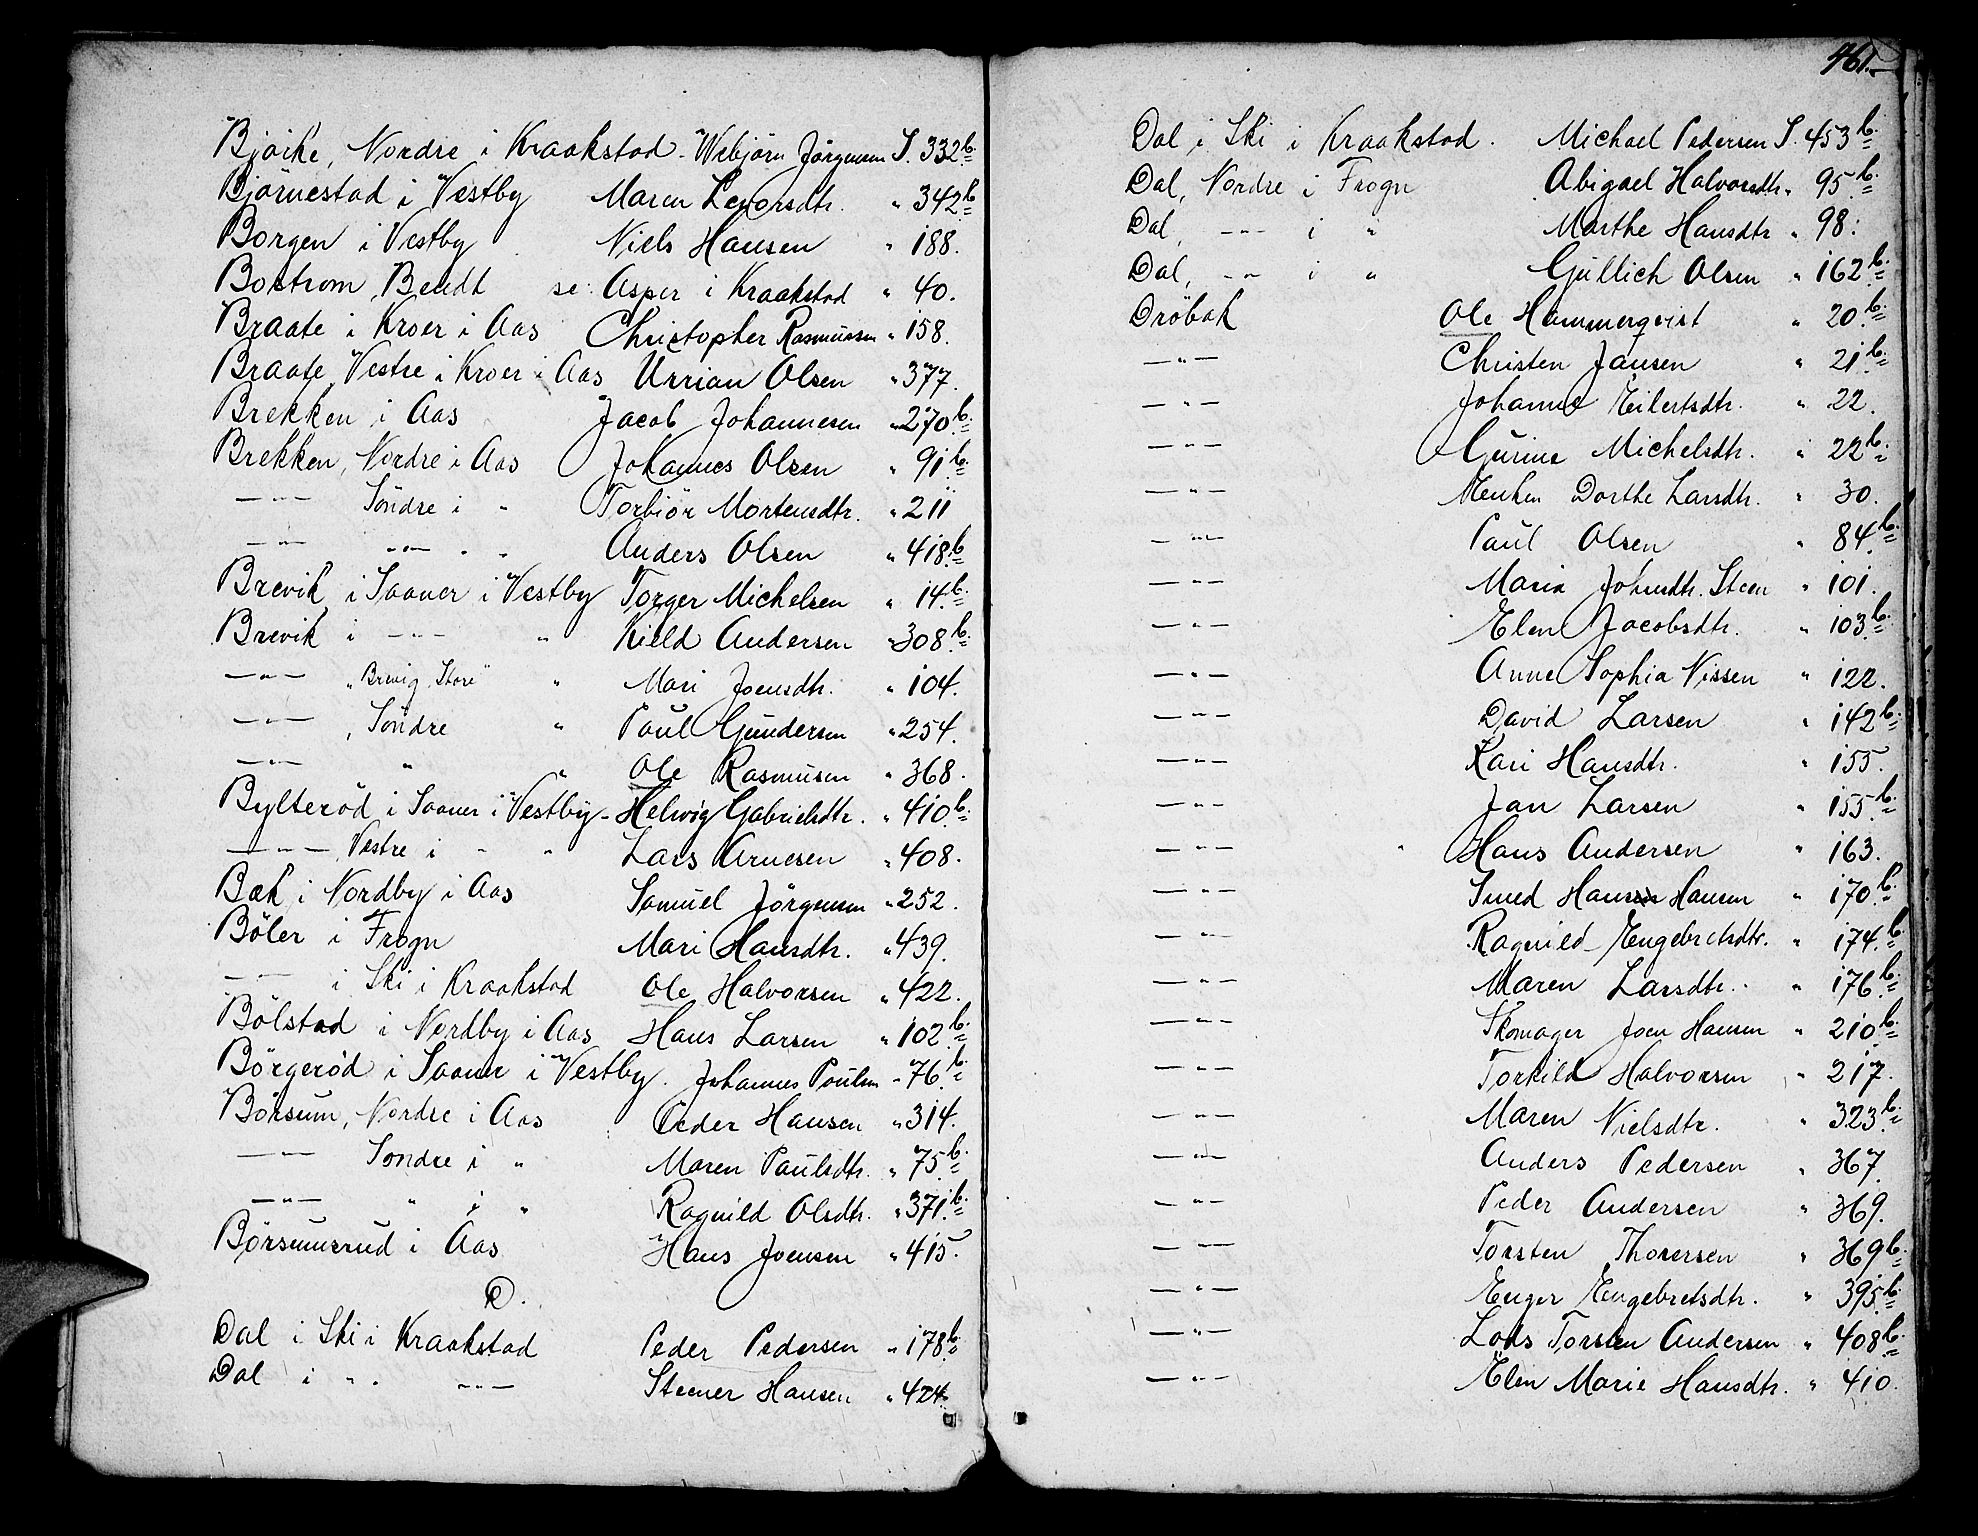 Bjørke, Nordre i Kraakstad - Webjørn Jørgensen S. 332 b.
Bjørnestad i Vestby Maren Levorsdtr. " 342 b
Borgen i Vestby Niels Hansen " 188.
Bostrom, Bendt se: Asper i Kraakstad " 40.
Braate i Kroer i Aas Christopher Rasmussen " 158.
Braate Vestre i Kroer i Aas Urrian Olsen " 377.
Brekken i Aas Jacob Johannesen " 270 b.
Brekken, Nordre i Aas Johannes Olsen " 91 b.
— " — Söndre i " Torbiör Mortensdtr. " 211
— " — " — " " Anders Olsen " 418 b
Brevik i Saaner i Vestby Torger Michelsen " 14 b.
Brevik i — " — " Kield Andersen " 308 b.
— " — "Brevig Store" " Mari Joensdtr. " 104.
— " — , Söndre " Paul Gundersen " 254.
— " — " " Ole Rasmusen " 368.
Bylteröd i Saaner i Vestby - Helwig Gabrielsdtr. " 410 b.
— " — Vestre i " " Lars Arnesen " 408.
Bæk i Nordby i Aas Samuel Jörgensen " 252.
Böler i Frogn Mari Hansdtr. " 439.
— " — i Ski i Kraakstad Ole Halvorsen " 422.
Bölstad i Nordby i Aas Hans Larsen " 102 b.
Börgeröd i Saaner i Vestby. Johannes Poulsen " 76 b.
Börsum, Nordre i Aas Peder Hansen " 314.
— " — Söndre i " Maren Paulsdtr. " 75 b.
— " — " i " Ragnild Olsdtr. " 371 b.
Börsumsrud i Aas Hans Joensen " 415.
D.
Dal i Ski i Kraakstad Peder Pedersen " 178 b.
Dal i " " — " — Steener Hansen " 424.
461.
Dal i Ski i Kraakstad. Michael Pedersen S. 453 b.
Dal, Nordre i Frogn Abigael Halvorsdtr. " 95 b.
Dal, — " — i " Marthe Hansdtr " 98.
Dal, — " — i " Gullich Olsen " 162 b.
Dröbak Ole Hammerqvist " 20 b.
— " — Christen Jansen " 21 b.
— " — Johanne Eilertsdtr. " 22.
— " — Gurine Michelsdtr. " 22 b.
— " — Dorthe Larsdtr. " 30.
— " — Paul Olsen " 84 b.
— " — Maria Johnsdtr. Steen " 101.
— " — Elen Jacobsdtr. " 103 b.
— " — Anne Sophia Nissen " 122.
— " — David Larsen " 142 b.
— " — Kari Hansdtr. " 155.
— " — Jan Larsen " 155 b.
— " — Hans Andersen " 163.
— " — Smed Hans Hansen " 170 b.
— " — Ragnild Engebretsdtr. " 174 b.
— " — Maren Larsdtr. " 176 b.
— " — Skomager Joen Hansen " 210 b.
— " — Torkild Halvorsen " 217.
— " — Maren Nielsdtr. " 323 b.
— " — Anders Pedersen " 367.
— " — Peder Andersen " 369.
— " — Torsten Thorersen " 369 b.
— " — Enger Engebretsdtr. " 395 b.
— " — Lods Torsten Andersen " 408 b.
— " — Elen Marie Hansdtr. " 410.